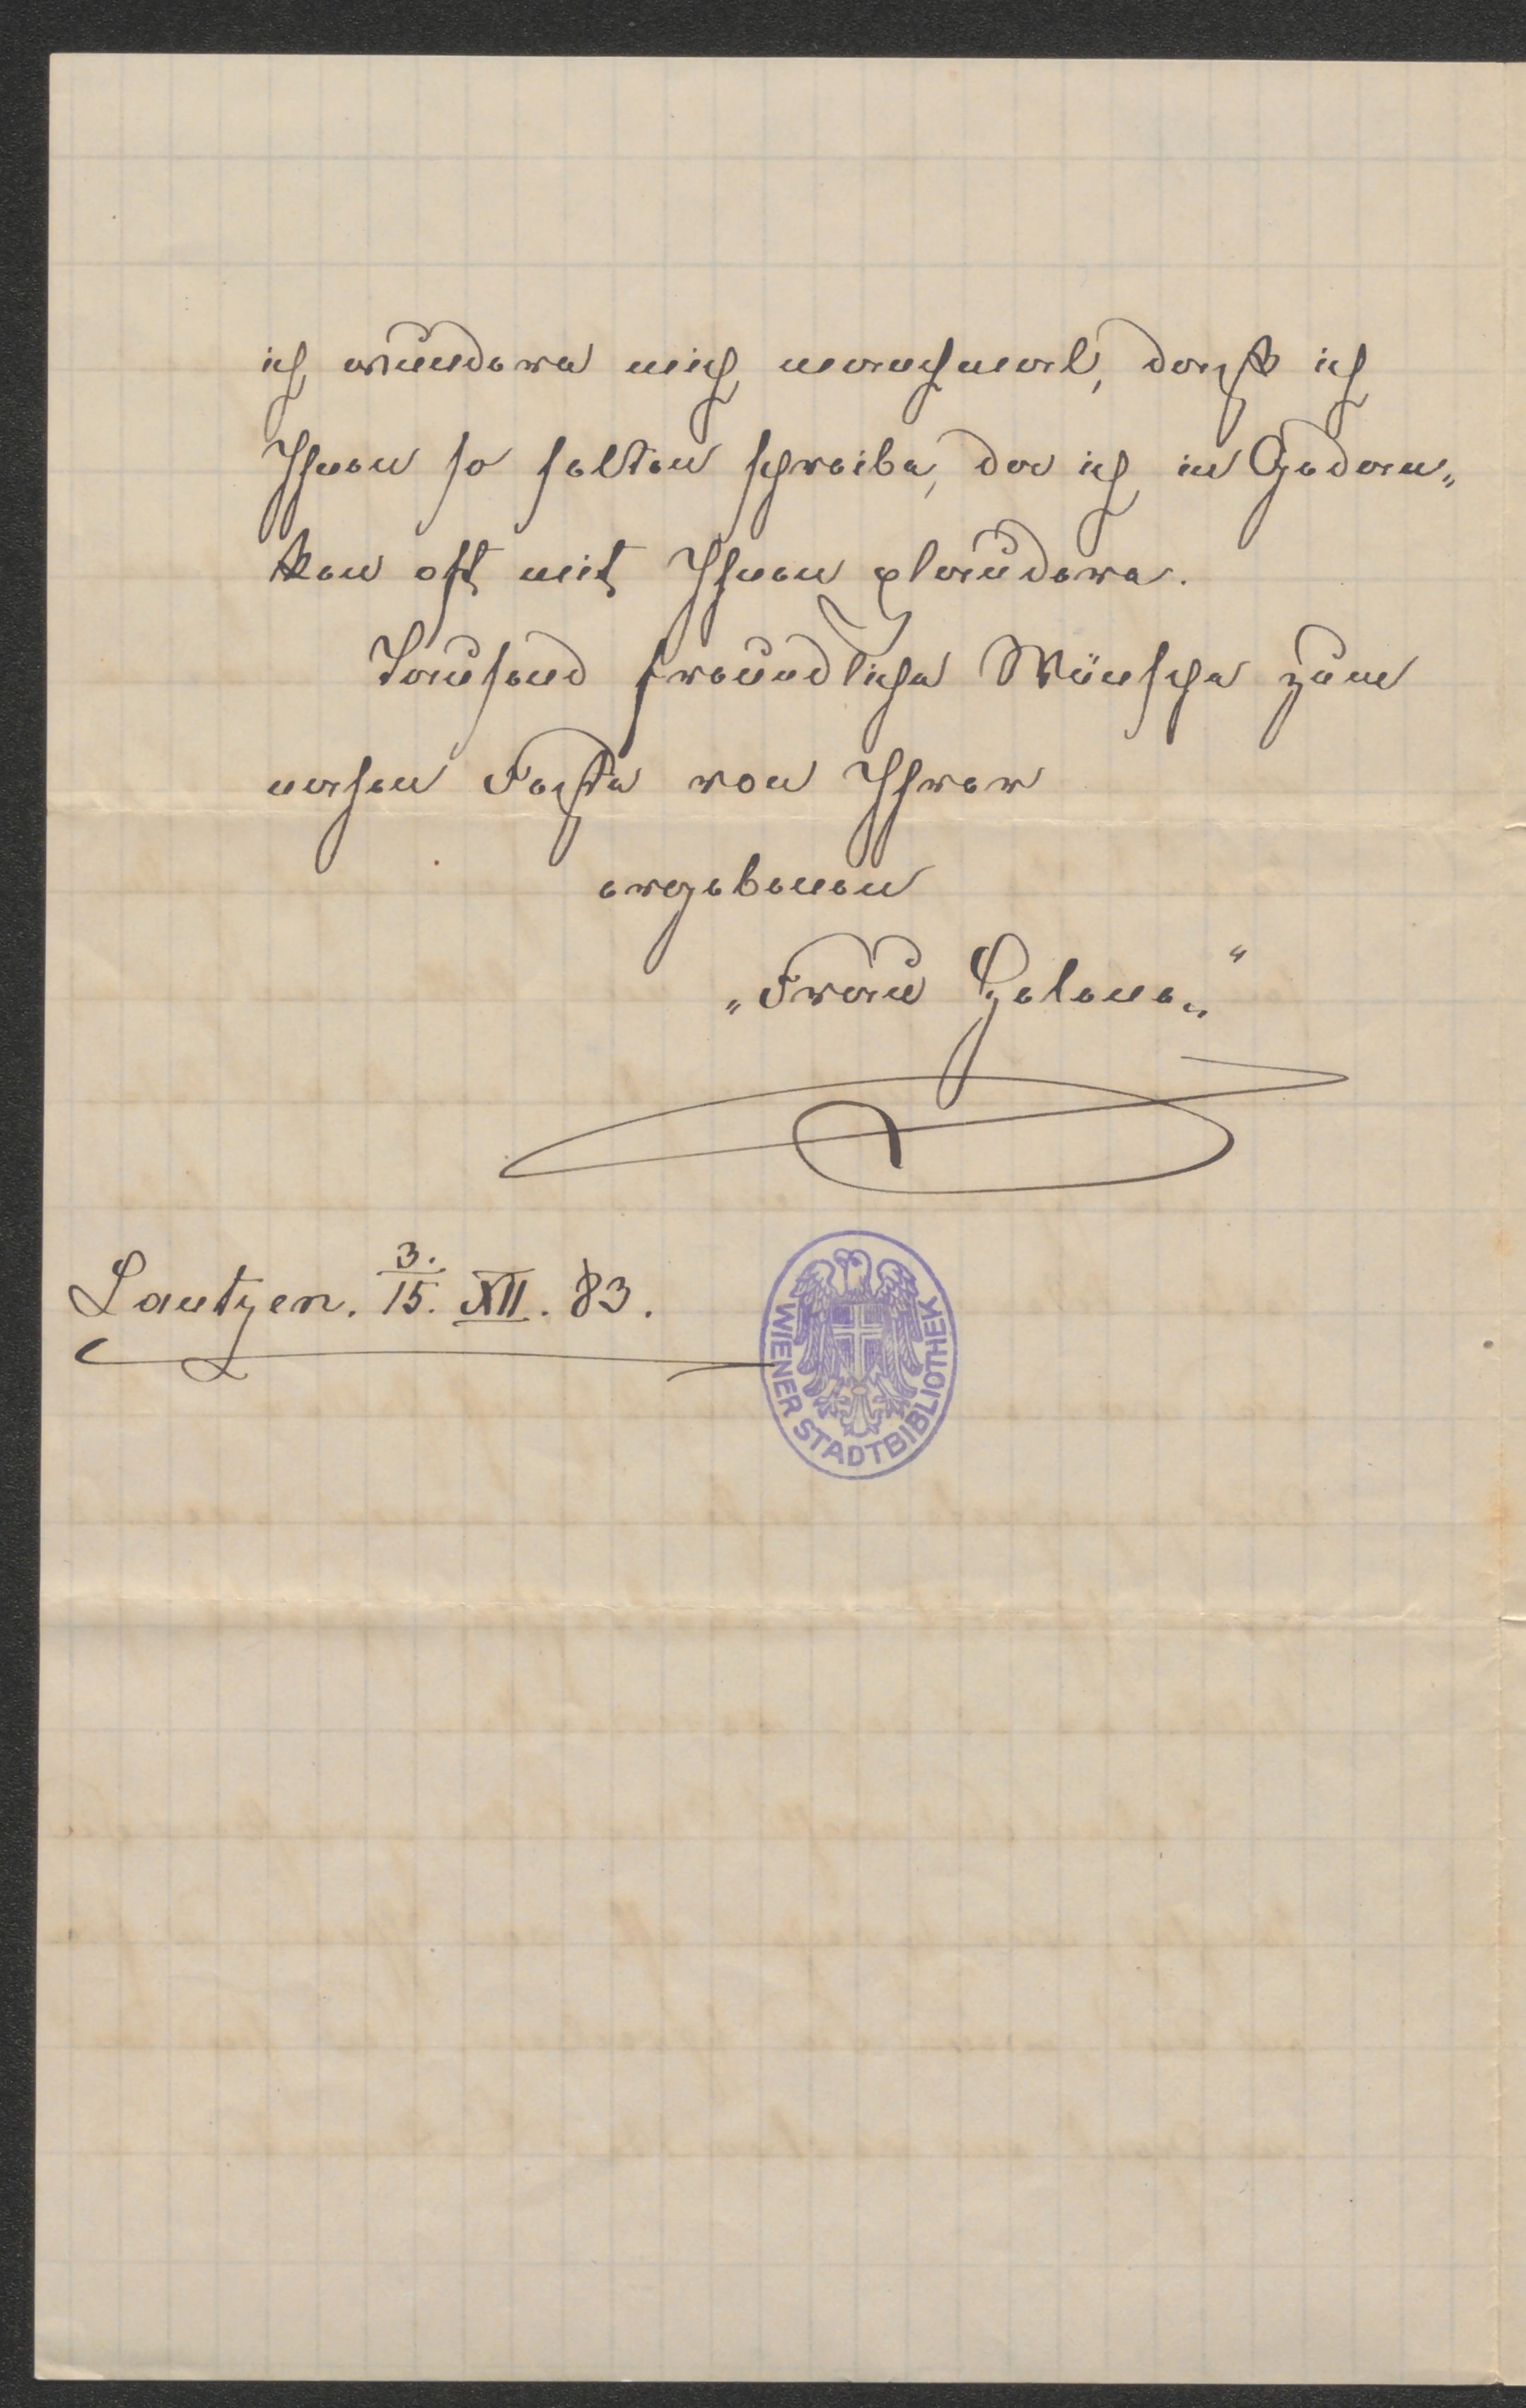 ich wundere mich manchmal, daß ich
Ihnen so selten schreibe, da ich in Gedan„
ken oft mit Ihnen plaudere.
Tausend freundliche Wünsche zum
nahen Feste von Ihrer
ergebenen
„Frau Helene.“
Lautzen. 3./15. XII. 83.
WIENER STADTBIBLIOTHEK